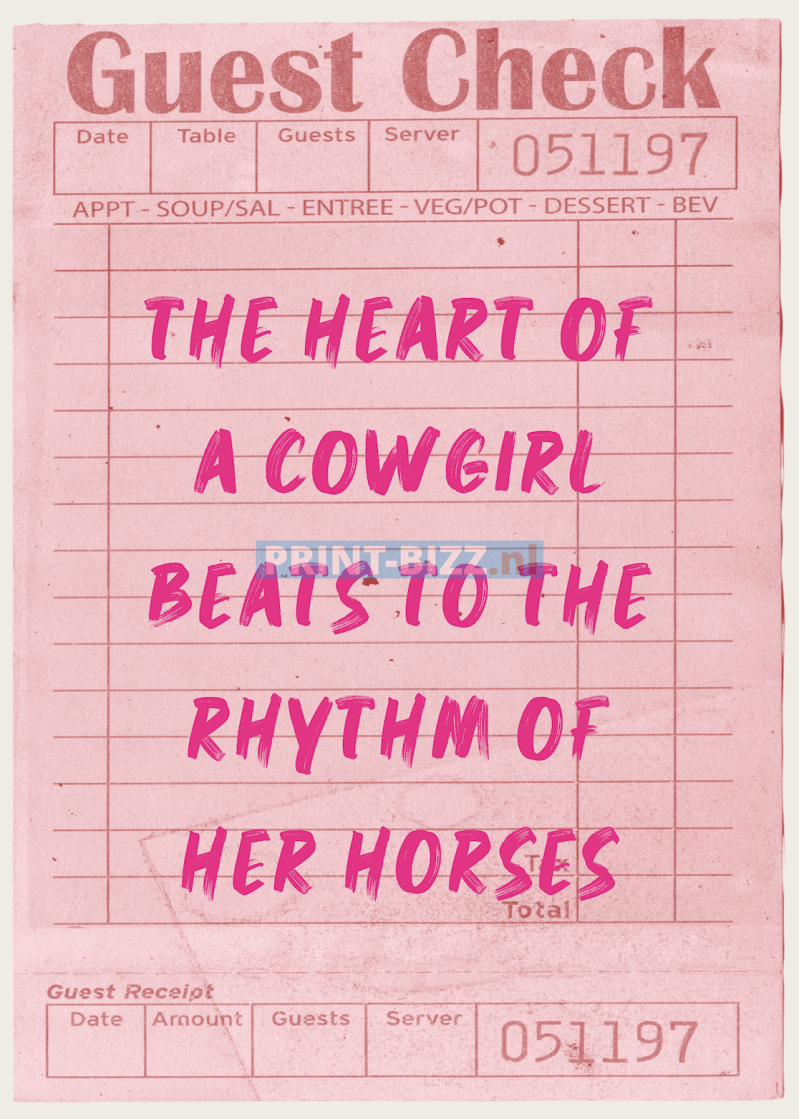 Guest Check
Date Table Guests Server 051197
APPT - SOUP/SAL - ENTREE - VEG/POT - DESSERT - BEV
THE HEART OF
A COWGIRL
PRINT-BIZZ.nl
BEATS TO THE
RHYTHM OF
HER HORSES
Tax
Total
Guest Receipt
Date Amount Guests Server 051197